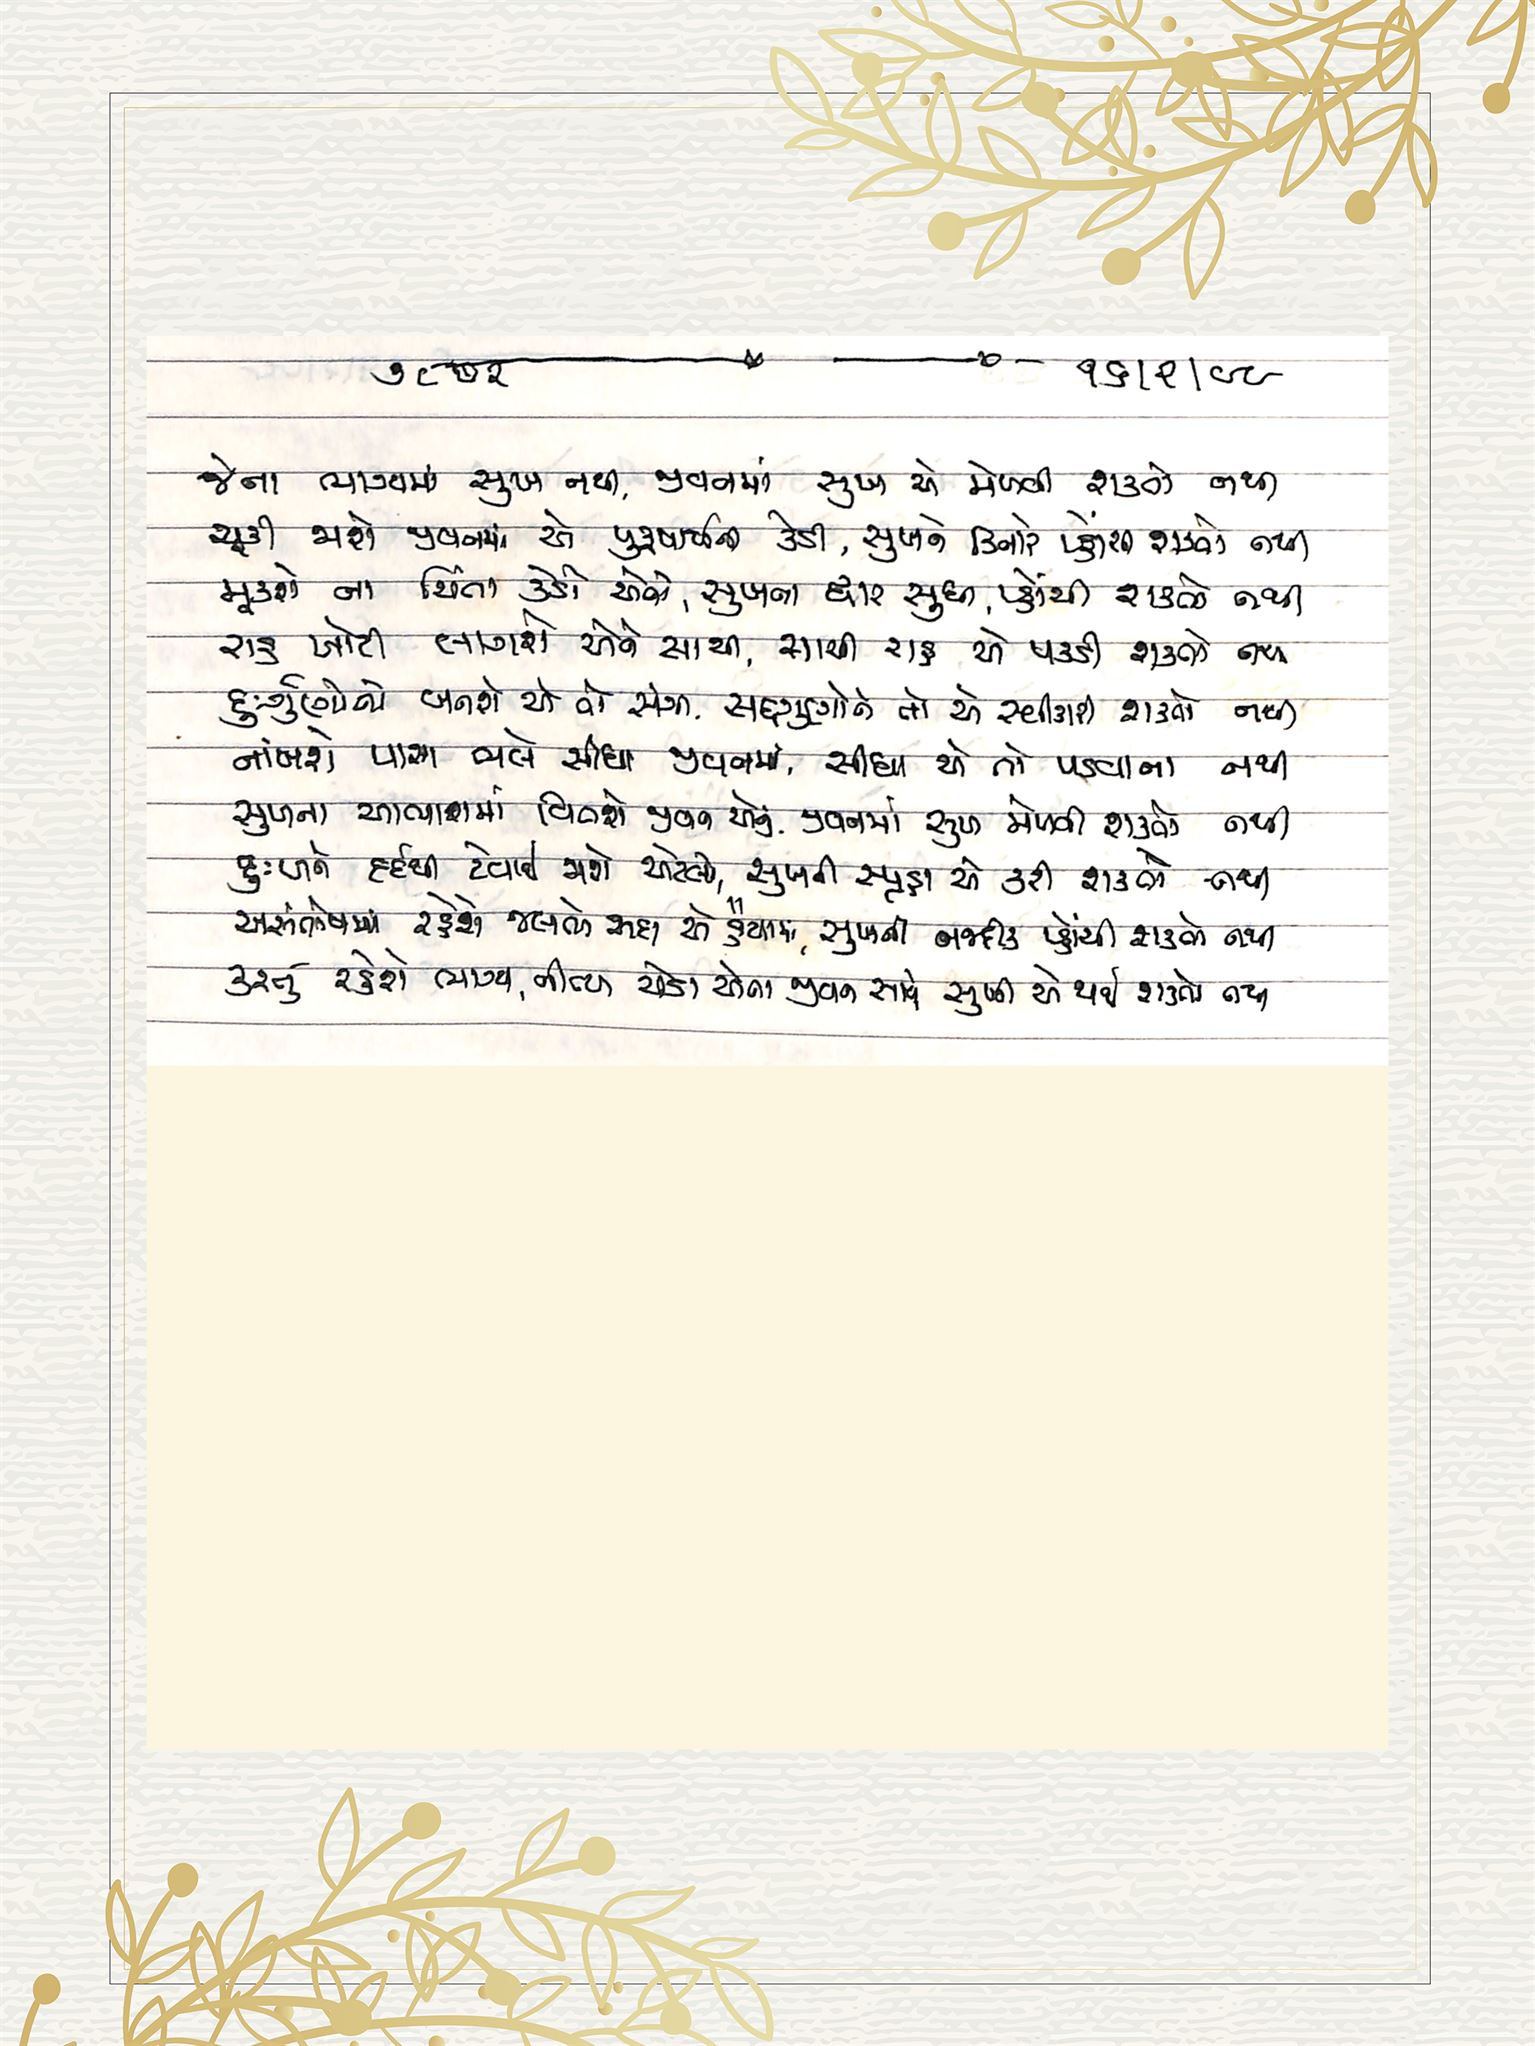 ૭૮૭૨ ૧૬/૨/૯૯
જેના ભાગ્યમાં સુખ નથી, જીવનમાં સુખ એ મેળવી શકતો નથી
ચૂકી જાશે જીવનમાં એ પુરુષાર્થની કેડી, સુખને કિનારે પ્હોંચી શકતો નથી
મૂકશે ના ચિંતા કેડો એનો, સુખના દ્વાર સુધી, પ્હોંચી શકતો નથી
રાહ ખોટી લાગશે એને સાચી, સાચી રાહ એ પકડી શકતો નથી
દુઃર્ગુણોનો બનશે એ તો સંગી. સદ્દગુણોને તો એ સ્વીકારી શકતો નથી
નાંખશે પાસા ભલે સીધા જીવનમાં, સીધા એ તો પડવાના નથી
સુખના આભાસમાં વિતશે જીવન એનું. જીવનમાં સુખ મેળવી શકતો નથી
દુઃખને દર્દથી ટેવાઈ જાશે એટલો, સુખની સ્પૃહા એ કરી શકતો નથી
અસંતોષમાં રહેશે જલતો સદા એ હૈયામાં, સુખની નજદીક પ્હોંચી શકતો નથી
કરતું રહેશે ભાગ્ય, નીત્ય ચેડાં એના જીવન સાથે સુખી એ થઈ શકતો નથી